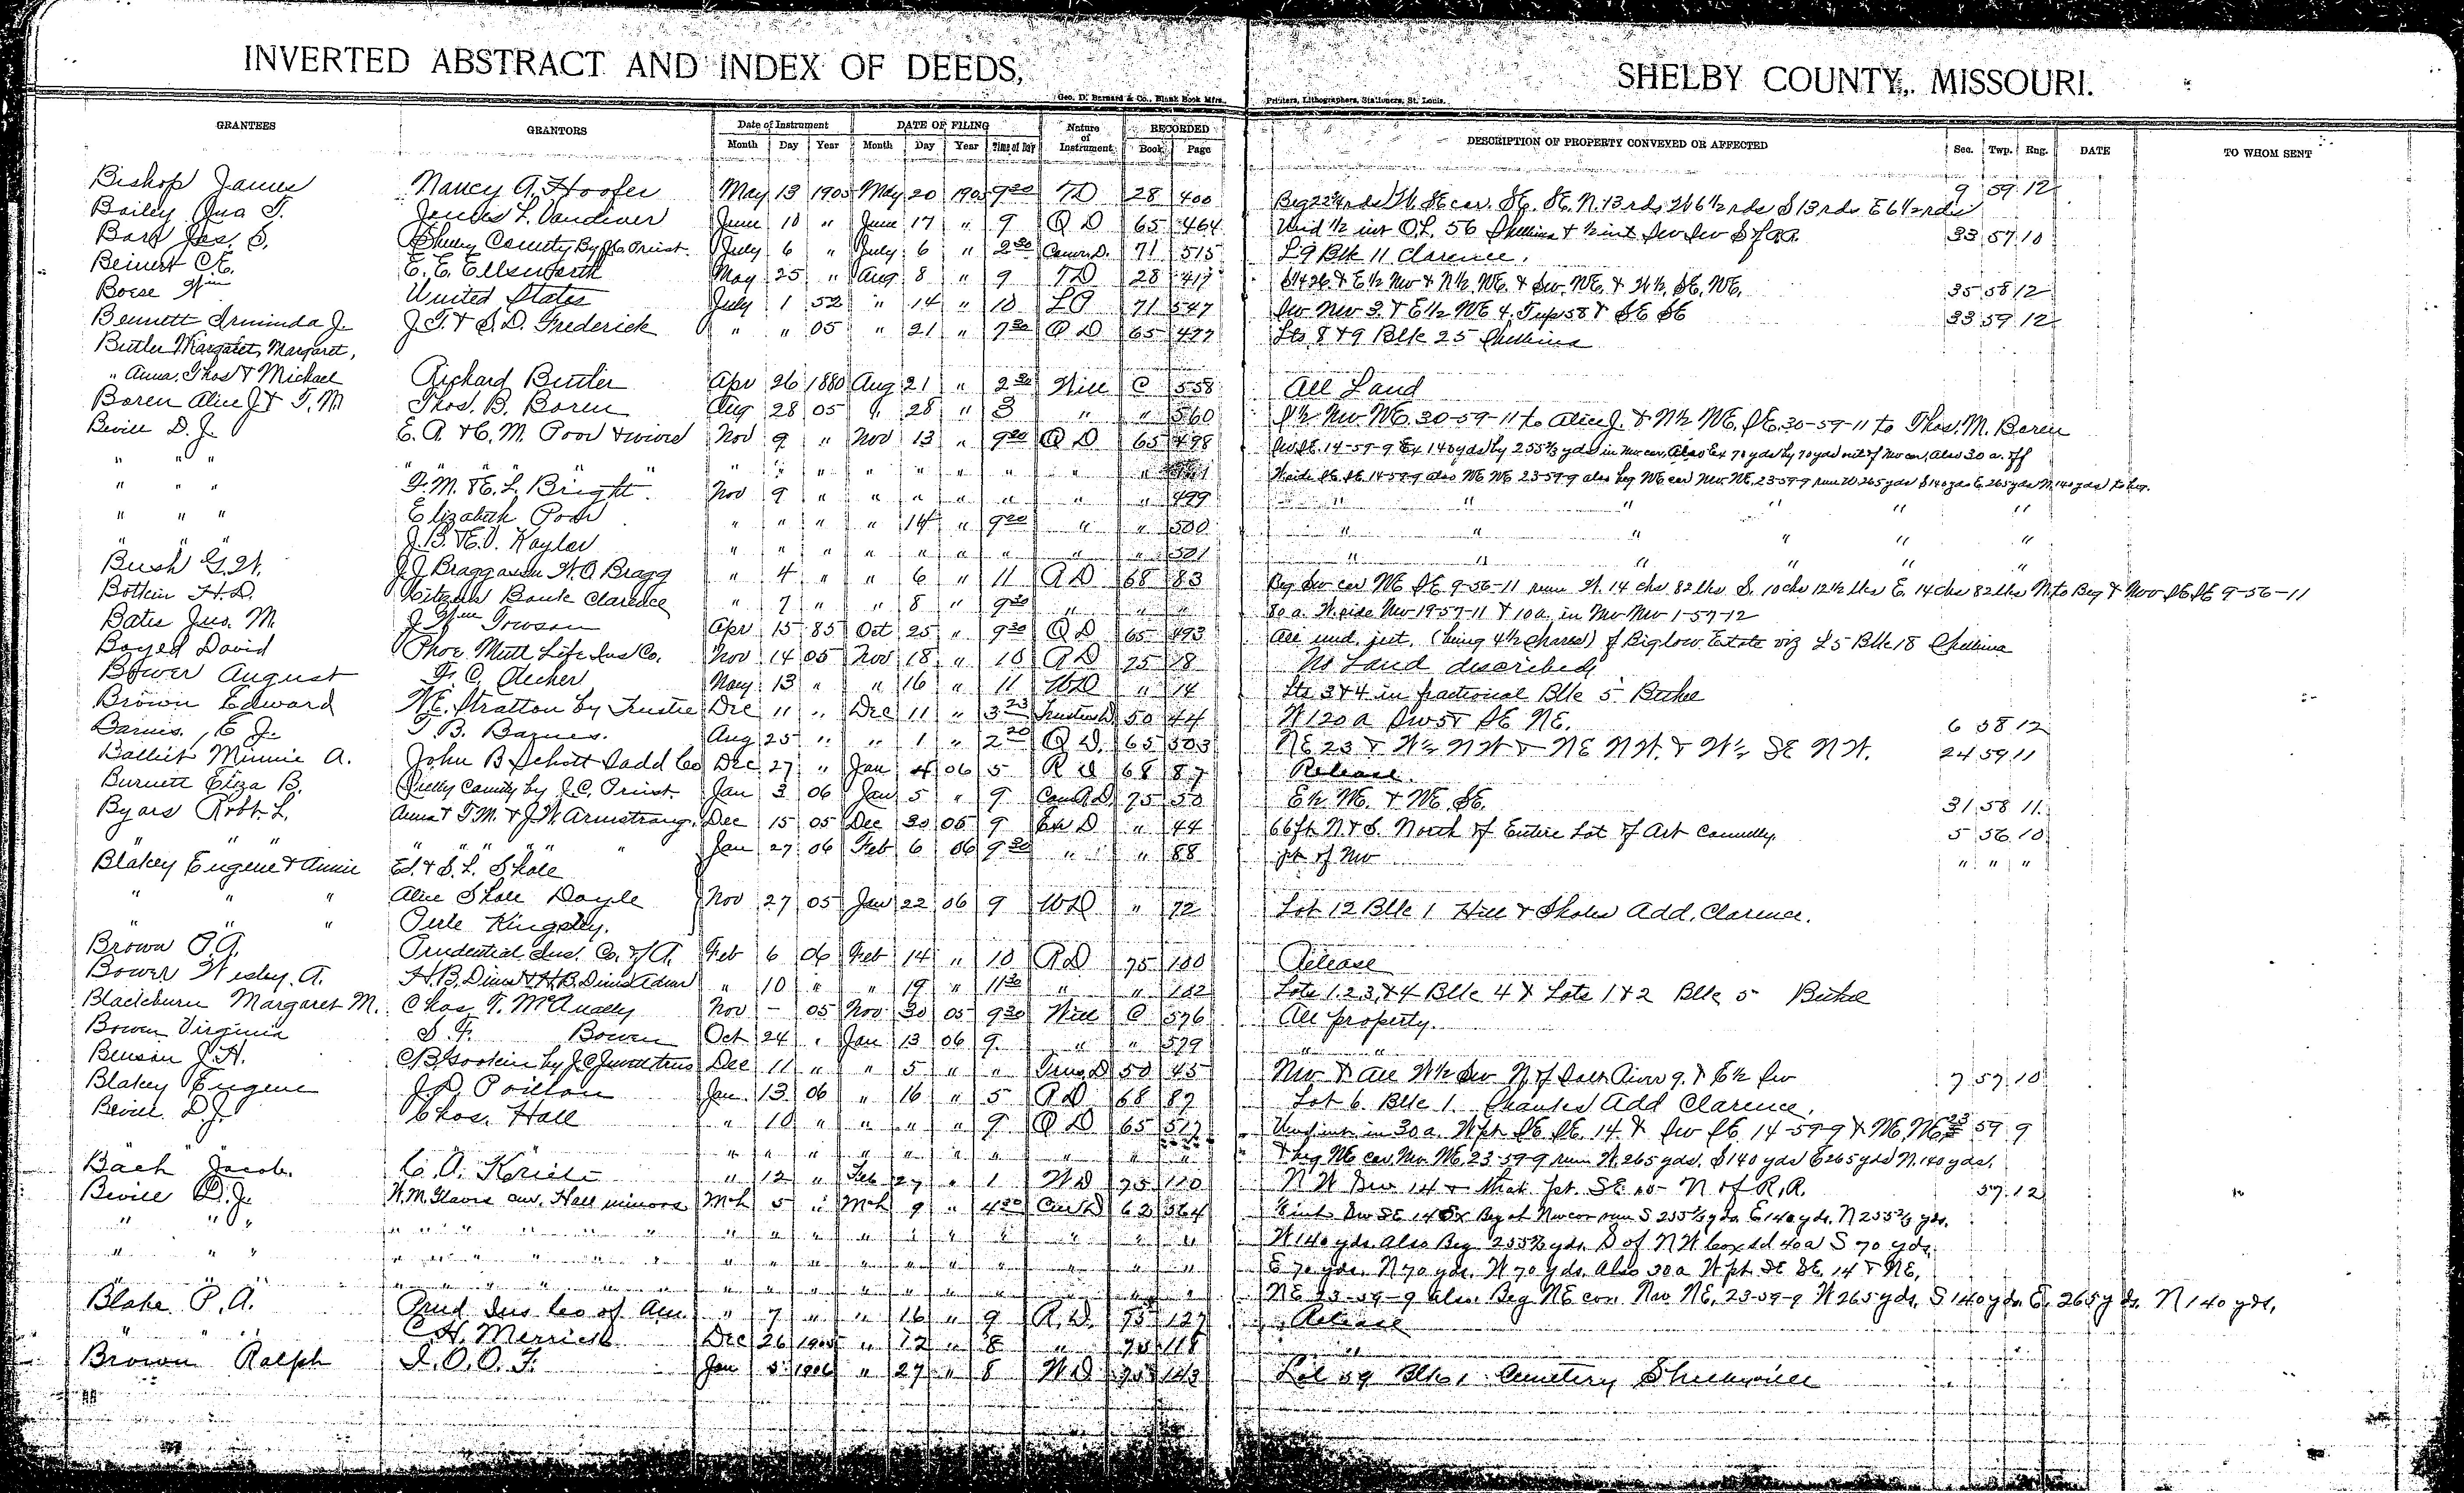 INVERTED ABSTRACT AND INDEX OF DEEDS, SHELBY COUNTY, MISSOURI.
Geo. D. Barnard & Co., Blank Book Mfrs. Printers, Lithographers, Stationers, St. Louis.
GRANTEES GRANTORS Date of Instrument DATE OF FILING Nature of Instrument RECORDED DESCRIPTION OF PROPERTY CONVEYED OR AFFECTED Sec. Twp. Rng. DATE TO WHOM SENT
Month Day Year Month Day Year Time of Day Book Page
Bishop James Nancy A. Hoofer May 13 1905 May 20 1905 9 30 TD 28 400 Beg 22 rds W. SE cor. SE. SE. N. 13 rds W 6½ rds S 13 rds E 6½ rds 9 59 12
Bailey Jno T. Vandiver June 10 " June 17 " 9 Q D 65 464 Und ½ int O.L. 56 Shelbina & ½ int Sw Sw 33 57 10
Barr Jas. S. Shelby County By Priest July 6 " July 6 " 2 30 71 515 L 9 Blk 11 Clarence.
Beinert C.E. E. E. Ellsworth May 25 " Aug 8 " 9 TD 28 417 & E½ Nw & N½ NE. & Sw. NE. & SE. NE. 35 58 12
Boese Wm United States July 1 52 " 14 " 10 71 547 Sw Nw 3 & E½ NE 4. Twp 58 & SE SE 33 59 12
Bennett Arminda J. J. T. & S. D. Frederick " " 05 " 21 " 7 30 Q D 65 477 Lts 8 & 9 Blk 25 Shelbina
Butler Margaret, Margaret,
" Anna, Thos & Michael Richard Butler Apr 26 1880 Aug 21 " 2 30 Will C 558 All Land
Boren Alice J & T. M Thos. B. Boren Aug 28 05 " 28 " 3 " " 560 Nw NE. 30-59-11 to Alice J. & N½ NE. SE. 30-59-11 to Thos. M. Boren
Bevill D. J. E. A. & C. M. Poor Nov 9 " Nov 13 " 9 30 Q D 65 498 SE. 14-59-9 Ex 140 yds by 255⅔ yds in Nw cor, Also Ex 70 yds by 70 yds out of Nw cor, Also 30 a. off
" " " " " " " " " " " " " " " W side SE. SE. 14-59-9 also NE NE 23-59-9 also beg NE cor Nw NE. 23-59-9 run W 265 yds S 140 yds E. 265 yds N. 140 yds to beg.
" " " F. M. & E. L. Bright. Nov 9 " " " " " " " 499 " " " " " "
" " " Elizabeth Poor " " " " 14 " 9 " " 500 " " " " " "
" " " J. B. & E. V. Kaylor " " " " " " " " " 501 " " " " " "
Bush G. W. J. J. Bragg W. O. Bragg " 4 " " 6 " 11 Q D 68 83 Beg Sw cor NE SE 9-56-11 run W. 14 chs 82 lks S. 10 chs 12½ lks E. 14 chs 82 lks N to Beg & Nw SE SE 9-56-11
Botkin H. D. Citizens Bank Clarence " 7 " " 8 " 9 30 " " " 80 a. W side Nw 19-57-11 & 10 a. in Nw Nw 1-57-12
Bates Jno. M. J. Wm Towson Apr 15 85 Oct 25 " 9 30 Q D 65 493 All und. int. (being 4½ shares) of Biglow Estate viz L 5 Blk 18 Shelbina
Boyed David Phoe Mutl Life Ins Co. Nov 14 05 Nov 18 " 10 R D 75 18 No Land described
Bower August F. C. 13 " " 16 " 11 WD " 14 Lts 3 & 4 in fractional Blk 5 Bethel
Brown Edward N. E. Stratton by Trustee Dec 11 " Dec 11 " 3 25 Trustees D 50 44 N 120 a Sw 5 & SE NE. 6 58 12
Barnes, E J. T B. Barnes. Aug 25 " " 1 " 2 30 Q D. 65 503 NE 23 & W½ NW & NE NW. & W½ SE NW. 24 59 11
Minnie A. John B Schott Dec 27 " Jan 4 06 5 R D 68 87 Release
Burnett Eliza B. Shelby County by J. C. Priest Jan 3 06 Jan 5 " 9 75 50 E½ NE. & NE. SE. 31 58 11
Byars Robt. L. Anna & T. M. & J. W. Armstrong Dec 15 05 Dec 30 05 9 D " 44 66 ft N & S. North of Entire Lot of Art Connelly. 5 56 10
" " " " " " " Jan 27 06 Feb 6 06 9 30 " " 88 pt of Nw " " "
Blakey Eugene & Annie Ed. & S. L. Shole
" " " Alice Shole Doyle Nov 27 05 Jan 22 06 9 WD " 72 Lot 12 Blk 1 Hill & Sholes Add. Clarence.
" " " Perle Kingsley.
Brown P. A. Prudential Ins. Co. of A. Feb 6 06 Feb 14 " 10 R D 75 100 Release
Bower Wesley. A. H. B. & H. B. Adm " 10 " " 19 " 11 30 " " 102 Lots 1. 2. 3. & 4 Blk 4 & Lots 1 & 2 Blk 5 Bethel
Blackburn Margaret M. Chas. T. McAnally Nov - 05 Nov 30 05 9 30 Will C 576 All property.
Bowen Virginia S. F. Bowen Oct 24 " Jan 13 06 9. " " 579 " "
Benson J. H. by J C Dec 11 " " 5 " " Trus. D 50 45 Nw & All N½ Sw N. of Salt River 9. & E½ Sw 7 57 10
Blakey Eugene J. D. Poillon Jan. 13 06 " 16 " 5 R D 68 89 Lot 6. Blk 1. Add Clarence.
Bevill D J. Chas. Hall " 10 " " " " 9 Q D 65 517 Und int in 30 a. W pt SE SE. 14. & Sw SE. 14-59-9 & NE NE 23 59 9
" " " " " " " " " " & beg NE cor. Nw NE. 23-59-9 run W. 265 yds. S 140 yds E 265 yds N. 140 yds.
Bach Jacob. C. A. " 12 " Feb 27 " 1 W D 75 110 N W Sw 14 & that pt. SE N of R. R. 57 12
Bevill D. J. W. M. Glavis cur. Hall minors Mch 5 " Mch 9 " 4 30 Cur D 62 564 Sw SE 14 Ex Beg at Nw cor run S 255⅔ yds. E 140 yds. N 255⅔ yds.
" " " " " " " " " " " " " " " W 140 yds. Also Beg 255⅔ yds. S of N W cor sd 40 a S 70 yds.
" " " " " " " " " " " " " " " E 70 yds. N 70 yds. W 70 yds. Also 30 a W pt. SE SE. 14 & NE.
" " " " " " " " " " " " " " " NE 23-59-9 Also. Beg NE cor. Nw NE. 23-59-9 W 265 yds. S 140 yds. E. 265 yds. N 140 yds.
Blake P. A. Prud Ins Co of Am. " 7 " " 16 " 9 R. D. 75 127 Release
" " " C. H. Merrick Dec 26 1905 " 12 " 8 " 75 118 "
Brown Ralph I. O. O. F. Jan 5 1906 " 27 " 8 W D 75 143 Lot 59 Blk 1 Cemetery Shelbyville